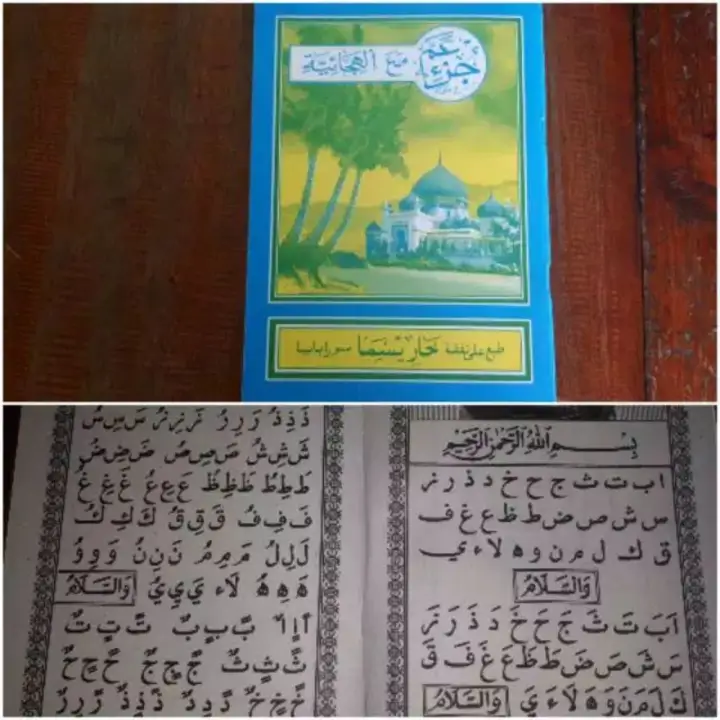 جزء عم
مع الهجائية
طبع على نفقة خاريسما سورابايا
بِسْمِ اللهِ الرَّحْمٰنِ الرَّحِيْمِ
ا ب ت ث ج ح خ د ذ ر ز
س ش ص ض ط ظ ع غ ف
ق ك ل م ن و ه لا ء ي
وَالسَّلَامُ
اَ بَ تَ ثَ جَ حَ خَ دَ ذَ رَ زَ
سَ شَ صَ ضَ طَ ظَ عَ غَ فَ قَ
كَ لَ مَ نَ وَ هَ لَا ءَ يَ وَالسَّلَامُ
ذَ ذِ ذُ رَ رِ رُ زَ زِ زُ سَ سِ سُ
شَ شِ شُ صَ صِ صُ ضَ ضِ ضُ
طَ طِ طُ ظَ ظِ ظُ عَ عِ عُ غَ غِ غُ
فَ فِ فُ قَ قِ قُ كَ كِ كُ
لَ لِ لُ مَ مِ مُ نَ نِ نُ وَ وِ وُ
هَ هِ هُ لَاء يَ يِ يُ وَالسَّلَامُ
اً اٍ اٌ بً بٍ بٌ تً تٍ تٌ
ثً ثٍ ثٌ جً جٍ جٌ حً حٍ حٌ
خً خٍ خٌ دً دٍ دٌ ذً ذٍ ذٌ رً رٍ رٌ